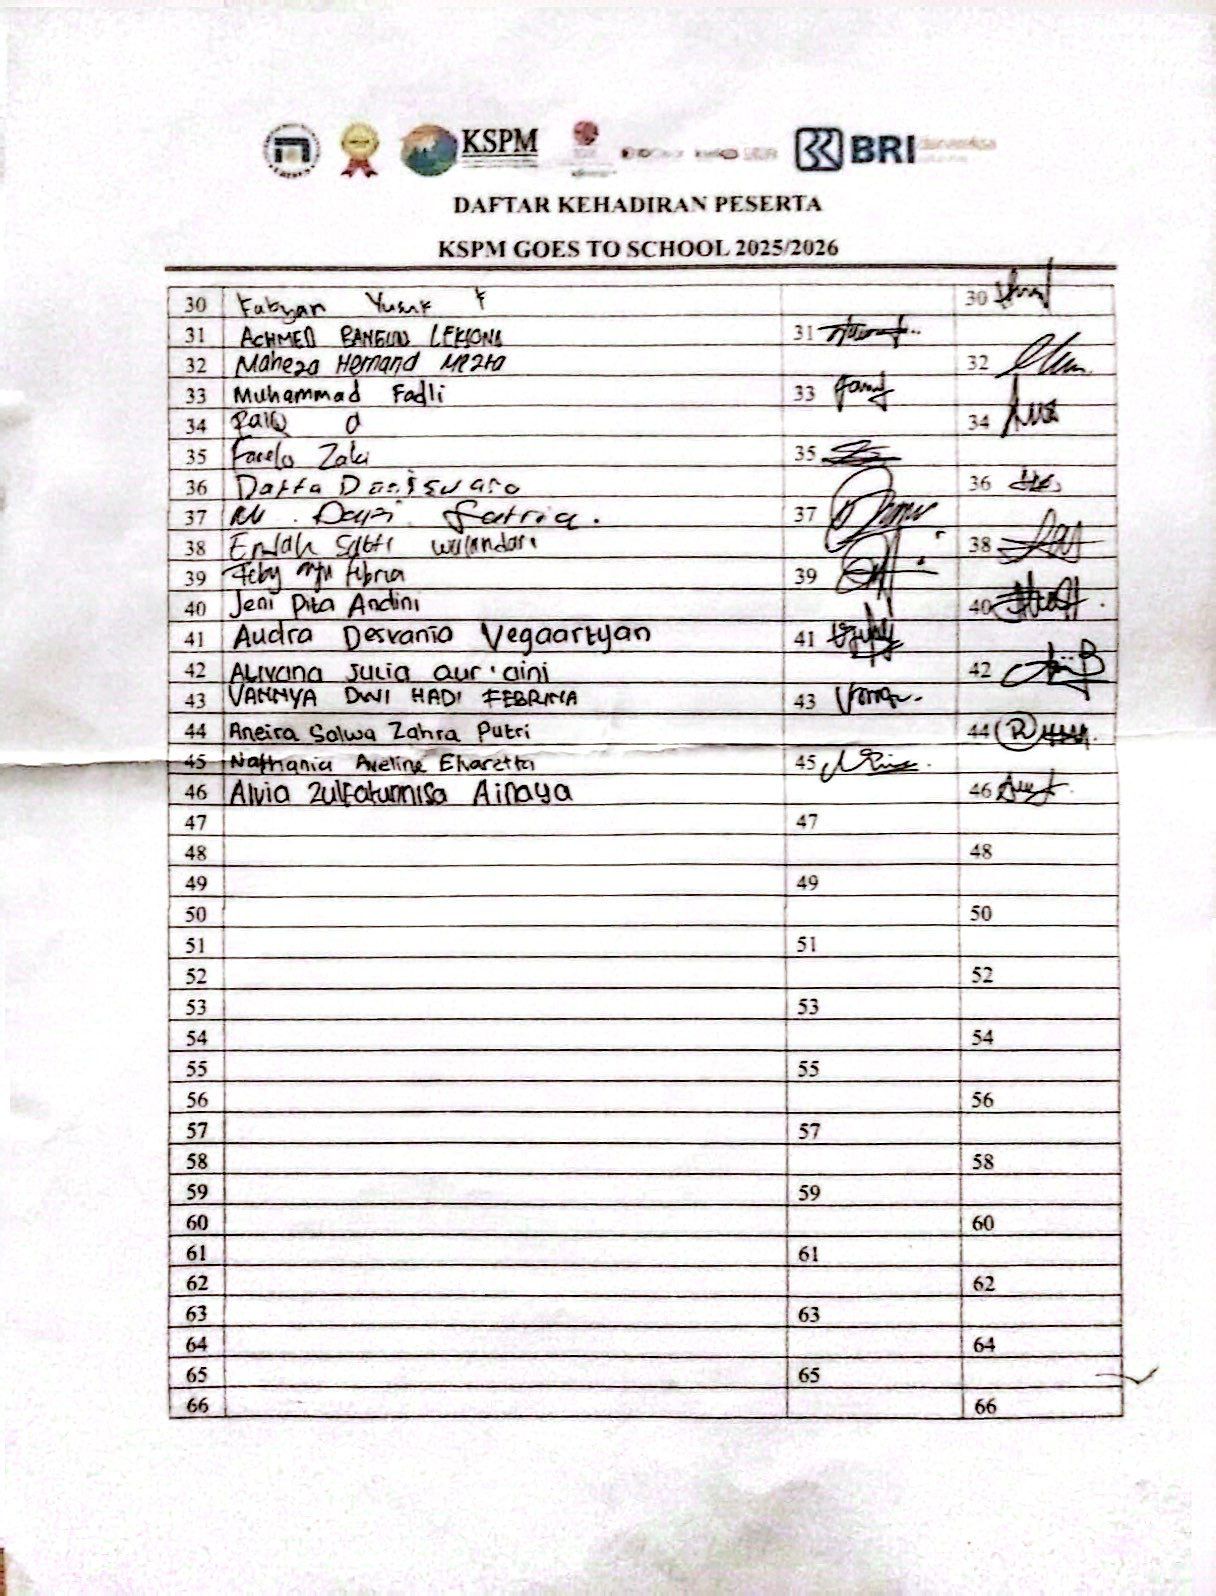 KSPM
BRI danareksa
DAFTAR KEHADIRAN PESERTA
KSPM GOES TO SCHOOL 2025/2026
30 Fabyan Yusuf F 30
31 ACHMED BANGUN 31
32 Maheza Hernand 32
33 Muhammad Fadli 33
34 34
35 Farelo Zaki 35
36 Daffa 36
37 M. Satria. 37
38 Endah Sakti wulandari 38
39 Feby Febria 39
40 Jeni Pita Andini 40
41 Audra Desvania Vegaartyan 41
42 ALIVCINA JULIA QUR'aini 42
43 VANNYA DWI HADI FEBRINA 43
44 Aneira Salwa Zahra Putri 44
45 Nathania Aveline Elvaretta 45
46 Alvia Zulfatunnisa Ainaya 46
47 47
48 48
49 49
50 50
51 51
52 52
53 53
54 54
55 55
56 56
57 57
58 58
59 59
60 60
61 61
62 62
63 63
64 64
65 65
66 66